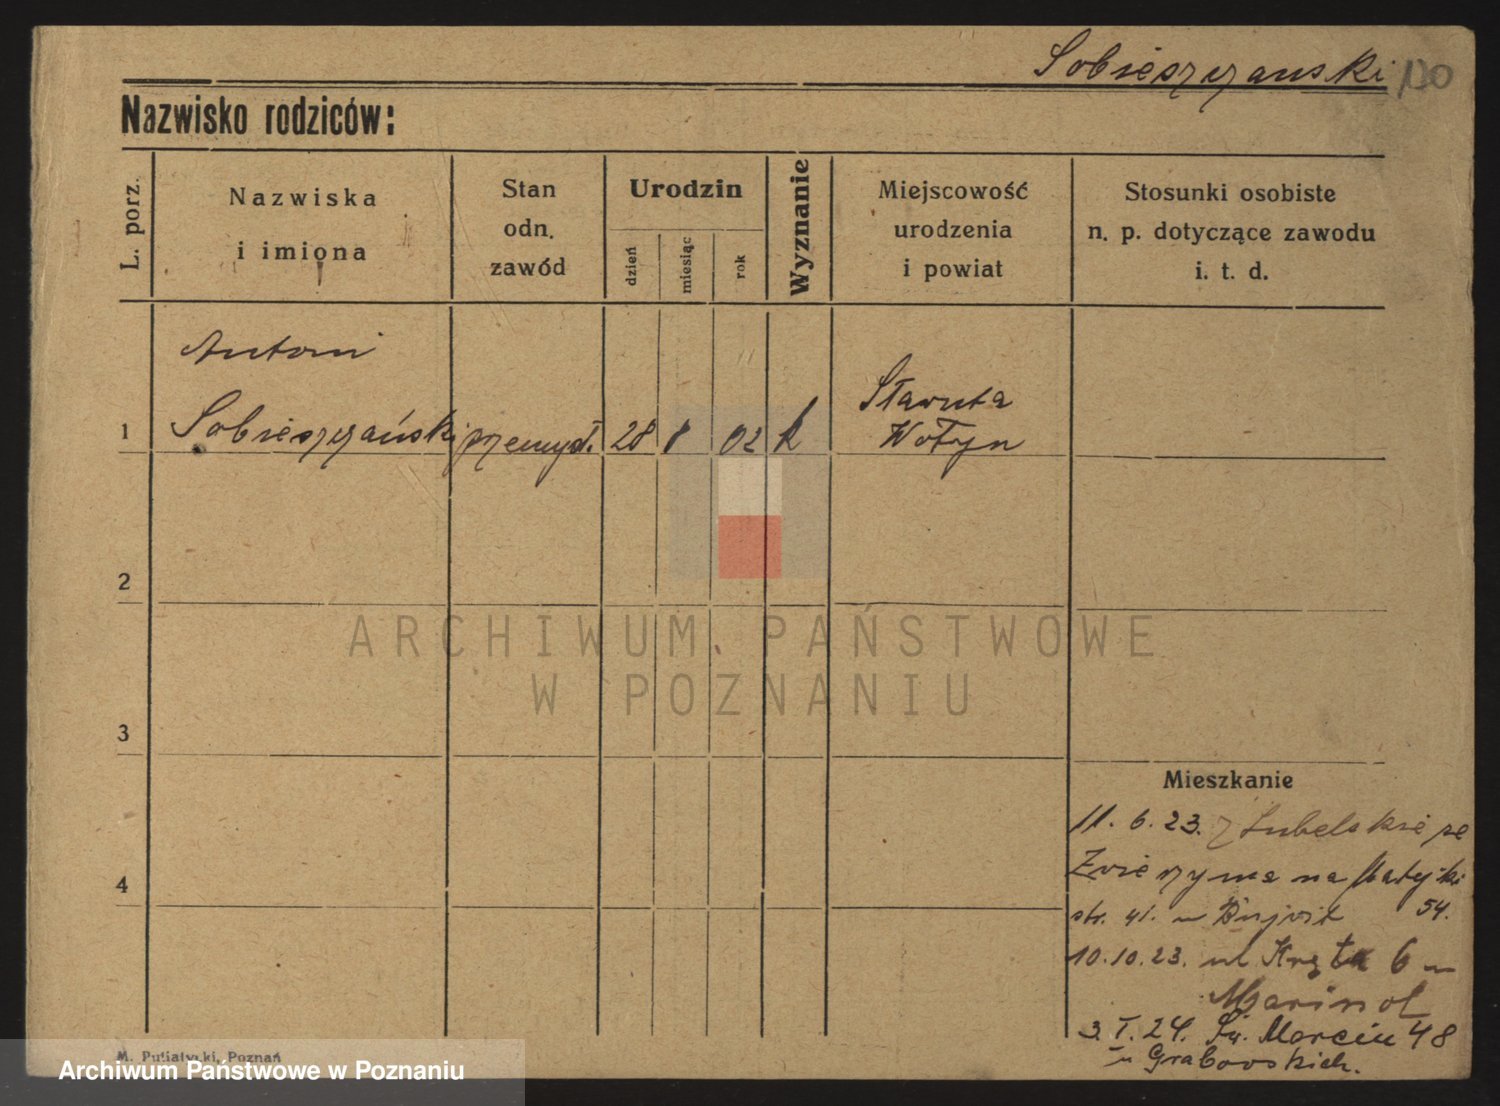 Sobieszczanski 130
Nazwisko rodziców:
L. porz.
Nazwiska
i imiona
Stan
odn.
zawód
Urodzin
dzień
miesiąc
rok
Wyznanie
Miejscowość
urodzenia
i powiat
Stosunki osobiste
n. p. dotyczące zawodu
i. t. d.
Antoni
1 Sobieszczański przemysł. 28 8 02 k
Sławuta
Wołyn
2
ARCHIWUM PAŃSTWOWE
W POZNANIU
3
Mieszkanie
11. 6. 23. z Lubelskie ze
Zwierzyna na Matejki
4
str. 41. u 54.
10.10.23. ul Kręta 6 u
3. I. 24. Św. Marcin 48
u Grabowskich.
M. Putiatycki, Poznań
Archiwum Państwowe w Poznaniu